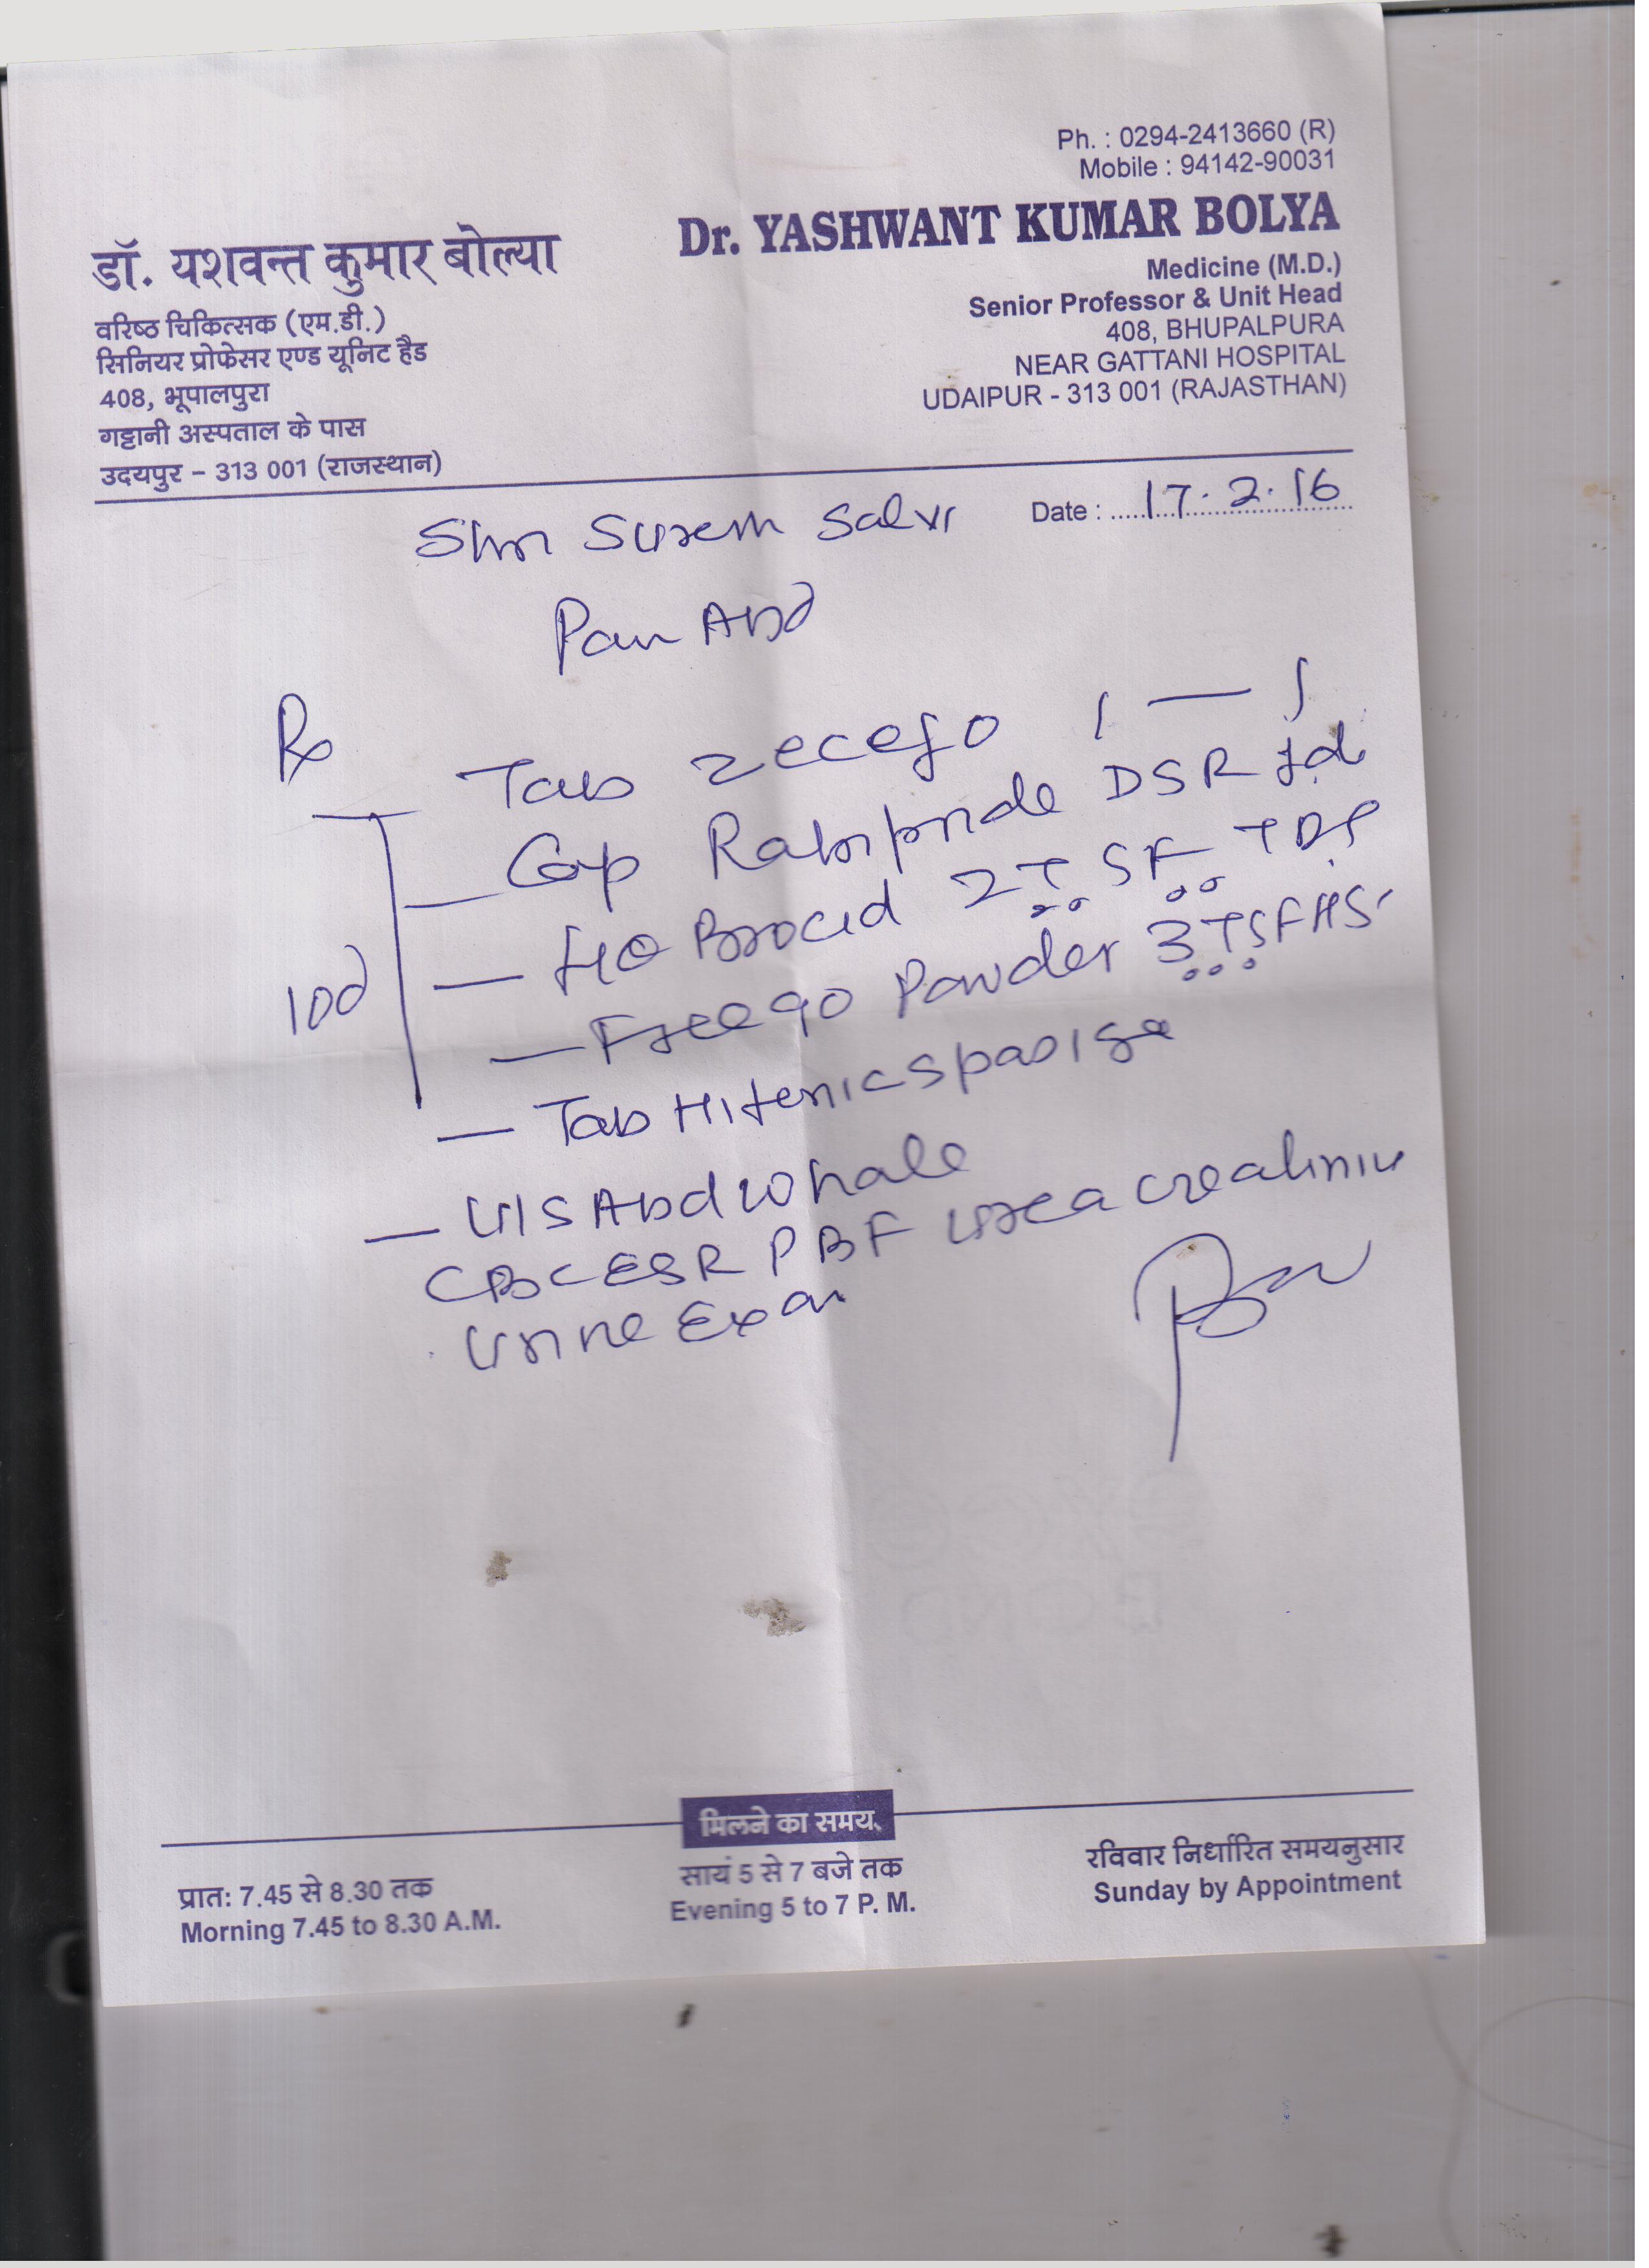 Ph. : 0294-2413660 (R)
Mobile : 94142-90031
डॉ. यशवन्त कुमार बोल्या
वरिष्ठ चिकित्सक (एम.डी.)
सिनियर प्रोफेसर एण्ड यूनिट हैड
408, भूपालपुरा
गट्टानी अस्पताल के पास
उदयपुर – 313 001 (राजस्थान)
Dr. YASHWANT KUMAR BOLYA
Medicine (M.D.)
Senior Professor & Unit Head
408, BHUPALPURA
NEAR GATTANI HOSPITAL
UDAIPUR - 313 001 (RAJASTHAN)
Date : 17.2.16
Shri Suresh Salvi
Pain Abd
Rx
Tab zecefo 1 — 1
Cap DSR
2 TSF TDS
Powder 3 TSF HS
10d
Tab
U/S Abd whole
CBC ESR PBF Urea creatinine
Urine Exam
मिलने का समय
प्रात: 7.45 से 8.30 तक
Morning 7.45 to 8.30 A.M.
सायं 5 से 7 बजे तक
Evening 5 to 7 P. M.
रविवार निर्धारित समयनुसार
Sunday by Appointment